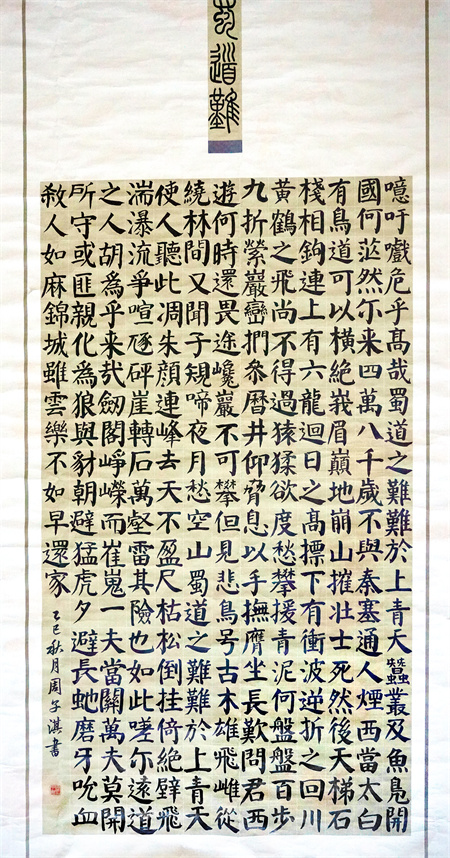 蜀道難
噫吁戲危乎髙哉蜀道之難難於上青天蠶叢及魚鳧開
國何茫然尒来四萬八千歲不與秦塞通人煙西當太白
有鳥道可以橫絕峩眉巔地崩山摧壯士死然後天梯石
棧相鉤連上有六龍迴日之髙標下有衝波逆折之回川
黃鶴之飛尚不得過猿猱欲度愁攀援青泥何盤盤百步
九折縈巖巒捫叅曆井仰脅息以手撫膺坐長歎問君西
遊何時還畏途巉巖不可攀但見悲鳥号古木雄飛雌從
繞林間又聞子規啼夜月愁空山蜀道之難難於上青天
使人聽此凋朱顏連峰去天不盈尺枯松倒挂倚絕壁飛
湍瀑流爭喧豗砯崖轉石萬壑雷其險也如此嗟尒遠道
之人胡為乎来哉劒閣崢嶸而崔嵬一夫當關萬夫莫開
所守或匪親化為狼與豺朝避猛虎夕避長虵磨牙吮血
殺人如麻錦城雖雲樂不如早還家
乙巳秋月周子淇書